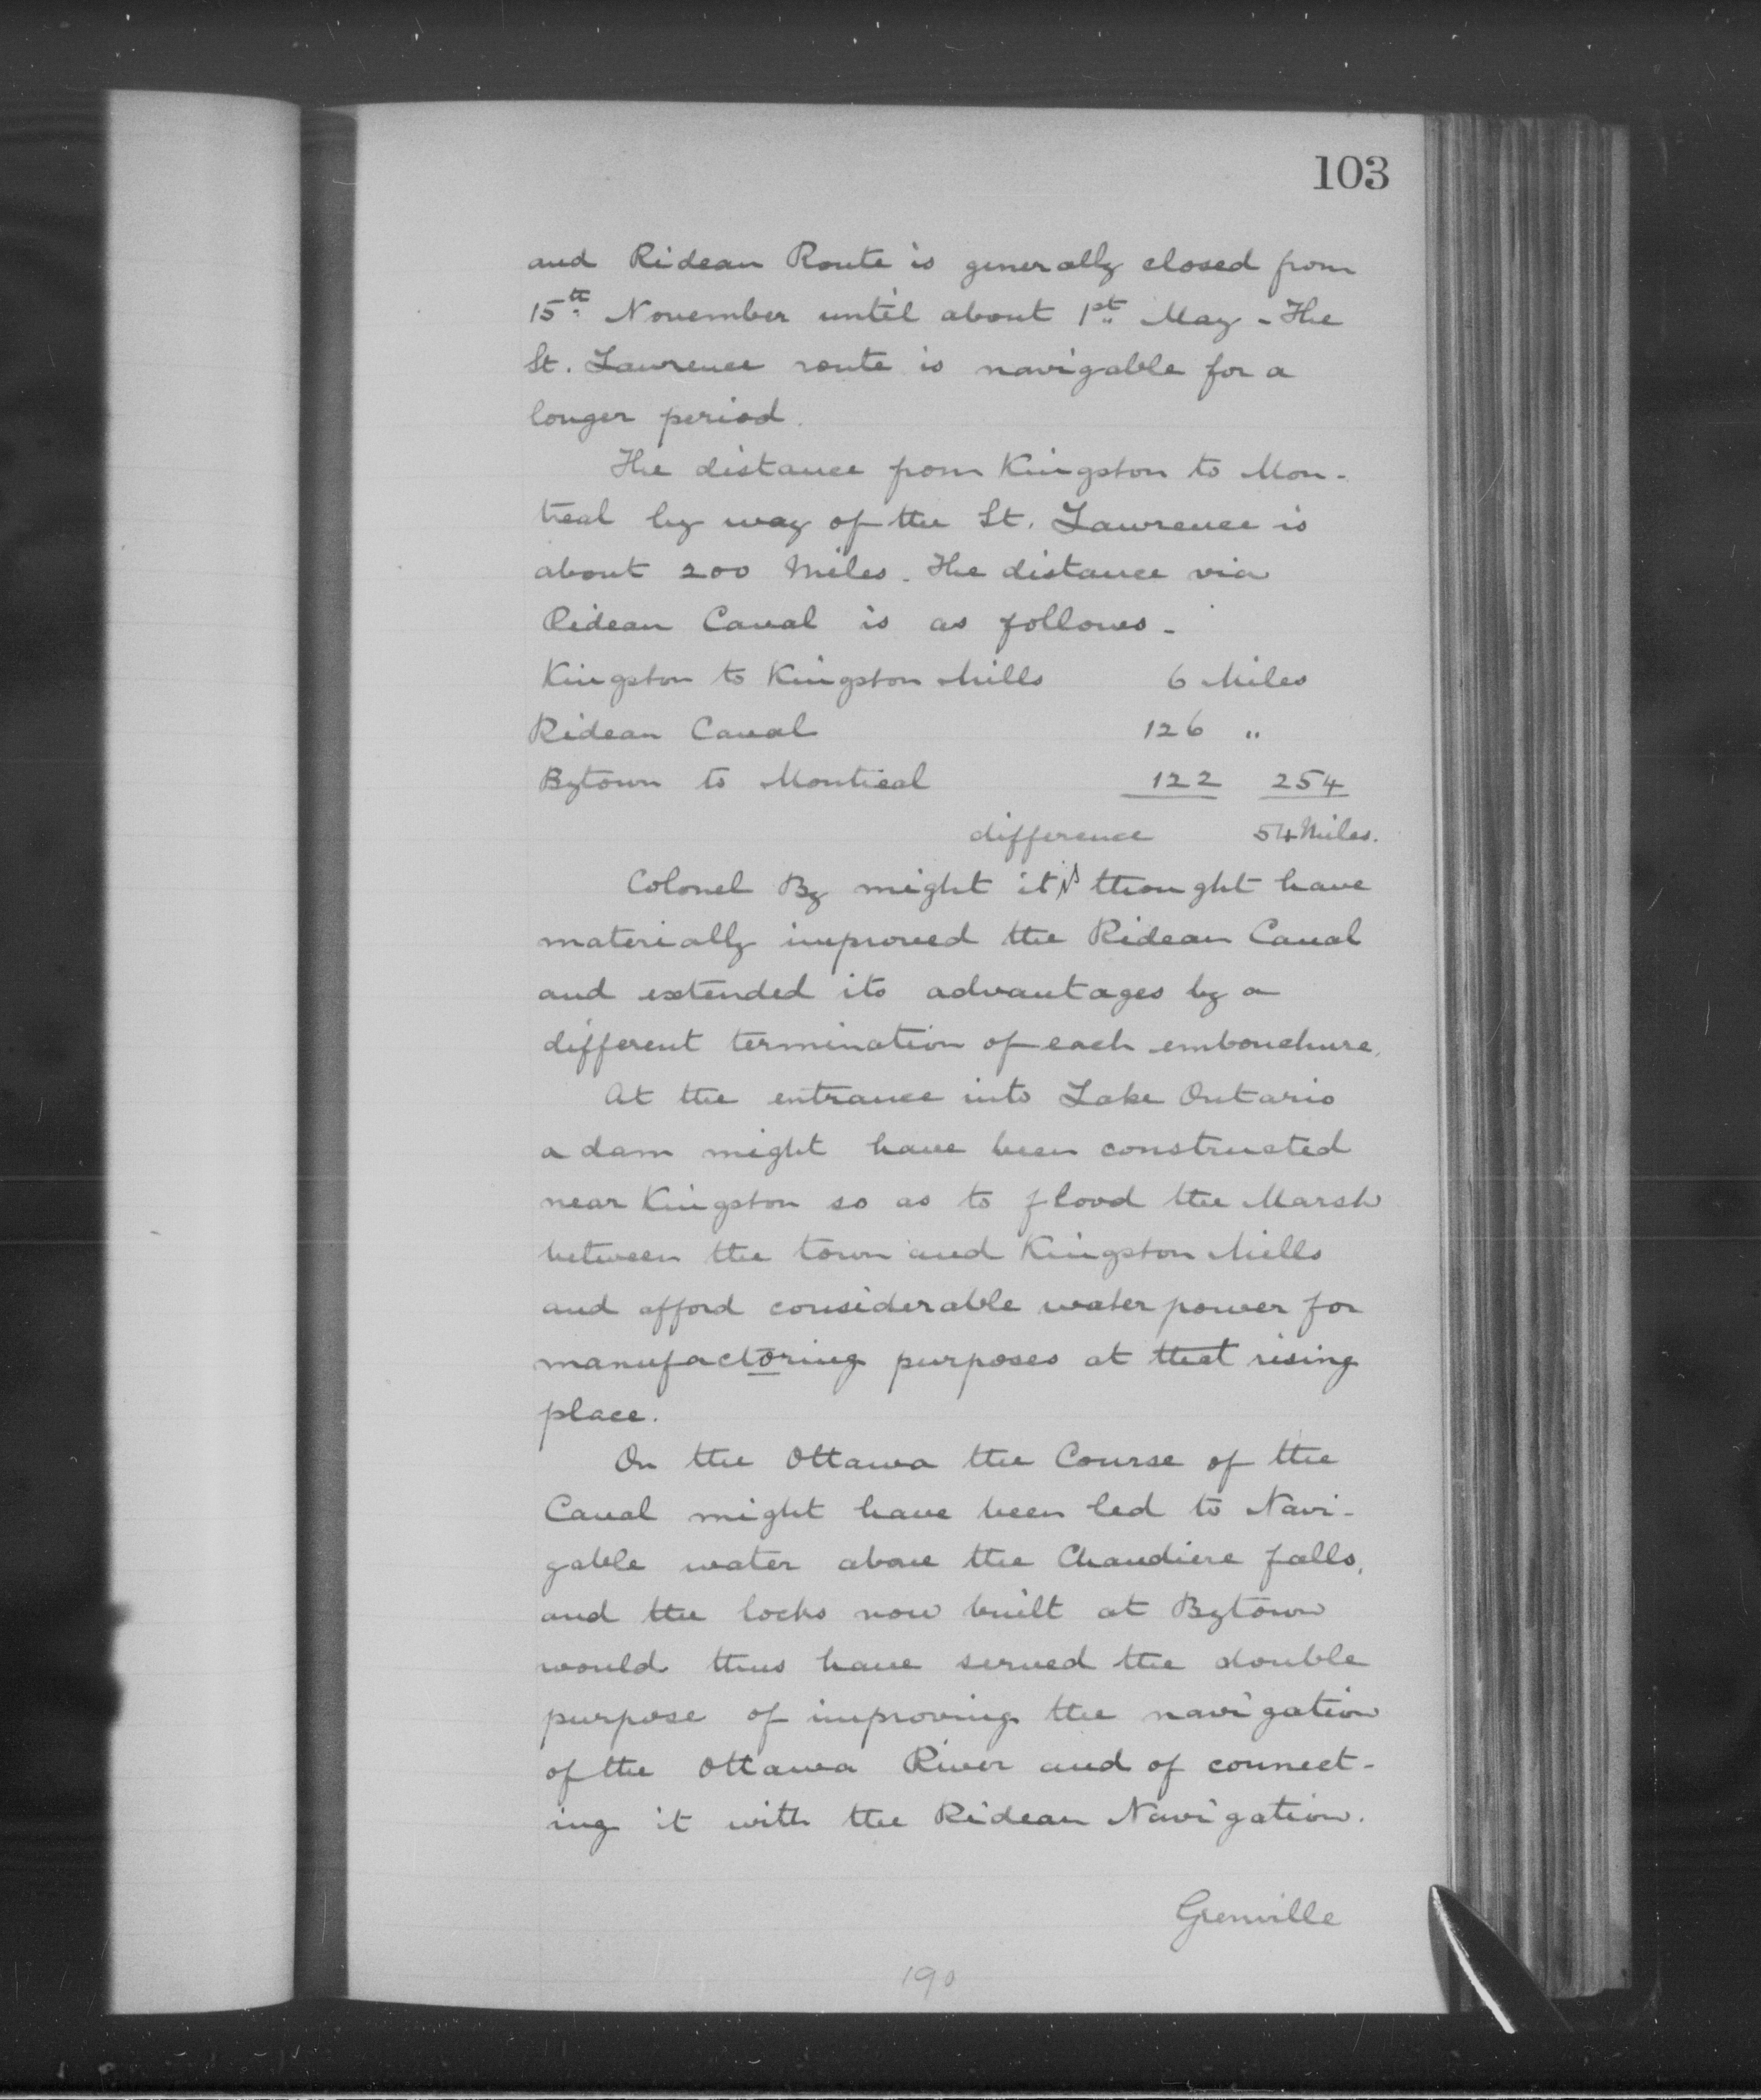 103
and Rideau Route is generally closed from
15th November until about 1st May - The
St. Lawrence route is navigable for a
longer period.
The distance from Kingston to Mon-
treal by way of the St. Lawrence is
about 200 Miles. The distance via
Rideau Canal is as follows -
Kingston to Kingston Mills 6 Miles
Rideau Canal 126 "
Bytown to Montreal 122 254
difference 54 Miles.
Colonel By might it is thought have
materially improved the Rideau Canal
and extended its advantages by a
different termination of each embouchure.
At the entrance into Lake Ontario
a dam might have been constructed
near Kingston so as to flood the Marsh
between the town and Kingston Mills
and afford considerable water power for
manufactoring purposes at that rising
place.
On the Ottawa the Course of the
Canal might have been led to Navi-
gable water above the Chaudiere falls,
and the locks now built at Bytown
would thus have served the double
purpose of improving the navigation
of the Ottawa River and of connect-
ing it with the Rideau Navigation.
Grenville
190